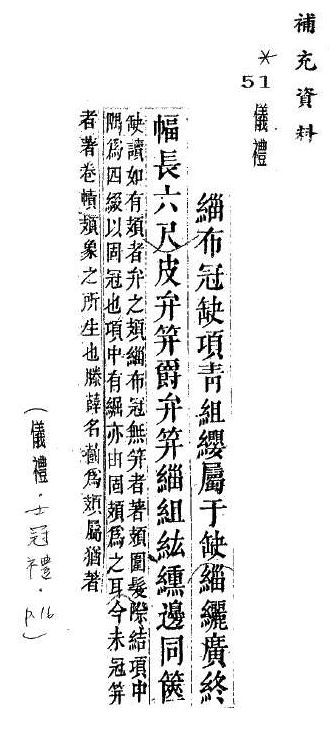 補充資料
*
51
儀禮
緇布冠缺項青組纓屬于缺緇纚廣終
幅長六尺皮弁笄爵弁笄緇組紘纁邊同篋
缺讀如有頍者弁之頍緇布冠無笄者著頍圍髮際結項中
隅為四綴以固冠也項中有亦由固頍為之耳今未冠笄
者著卷幘頍象之所生也滕薛名蔮為頍屬猶著
(儀禮·士冠禮·p.16)